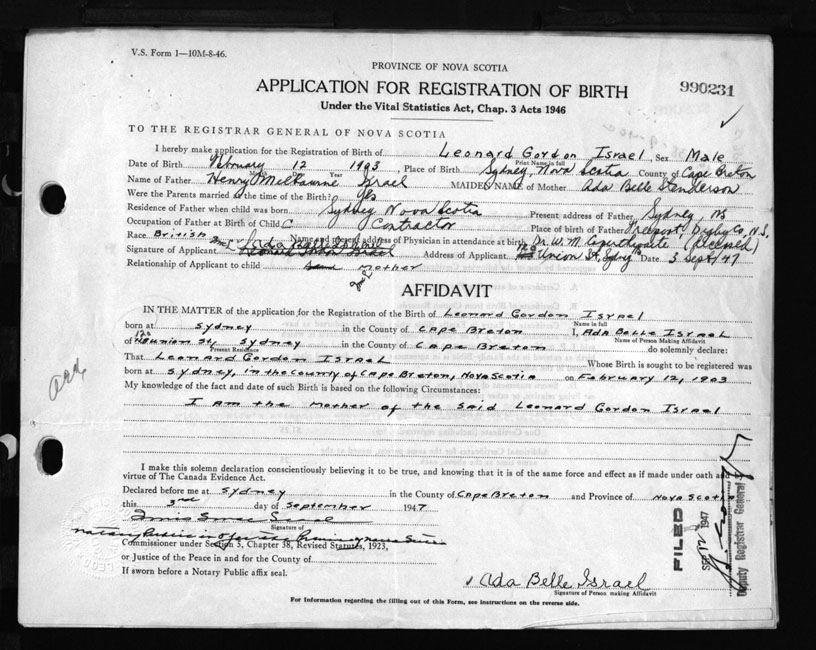 V.S. Form 1—10M-8-46.
PROVINCE OF NOVA SCOTIA
APPLICATION FOR REGISTRATION OF BIRTH
990231
Under the Vital Statistics Act, Chap. 3 Acts 1946
TO THE REGISTRAR GENERAL OF NOVA SCOTIA
I hereby make application for the Registration of Birth of Leonard Gordon Israel Sex Male
Print Name in full
Date of Birth February 12 1903 Place of Birth Sydney Nova Scotia County of Cape Breton
Month Year
Name of Father Henry Melbourne Israel MAIDEN NAME of Mother Ada Belle Stenderson
Were the Parments married at the time of Birth? yes
Residence of Father when child was born Sydney Nova Scotia Present address of Father Sydney, NS
Occupation of Father at Birth of Child Contractor Place of birth of Father Freeport Digby Co, N.S.
Race British Name and present address of Physician in attendance at birth Dr. W. M. (deceased)
Signature of Applicant Leonard Israel Address of Applicant Union St, Sydney Date 3 Sept/47
Relationship of Applicant to child mother
AFFIDAVIT
IN THE MATTER of the application for the Registration of the Birth of Leonard Gordon Israel
Name in full
born at Sydney in the County of Cape Breton I, Ada Belle Israel
Name of Person Making Affidavit
of Union St, Sydney in the County of Cape Breton do solemnly declare:
Present Residence
That Leonard Gordon Israel Whose Birth is sought to be registered was
born at Sydney, in the county of Cape Breton, Nova Scotia on February 12, 1903
My knowledge of the fact and date of such Birth is based on the following Circumstances:
I am the mother of the said Leonard Gordon Israel
I make this solemn declaration conscientiously believing it to be true, and knowing that it is of the same force and effect as if made under oath and
virtue of The Canada Evidence Act.
Declared before me at Sydney in the County of Cape Breton and Province of Nova Scotia
this 3rd day of September 1947
Signature of
Notary Public in & for the Province of Nova Scotia
Commissioner under Section 3, Chapter 38, Revised Statutes, 1923,
or Justice of the Peace in and for the County of
If sworn before a Notary Public affix seal.
Ada Belle Israel
Signature of Person making Affidavit
For Information regarding the filling out of this Form, see instructions on the reverse side.
FILED
SEP 12 1947
Deputy Registrar General